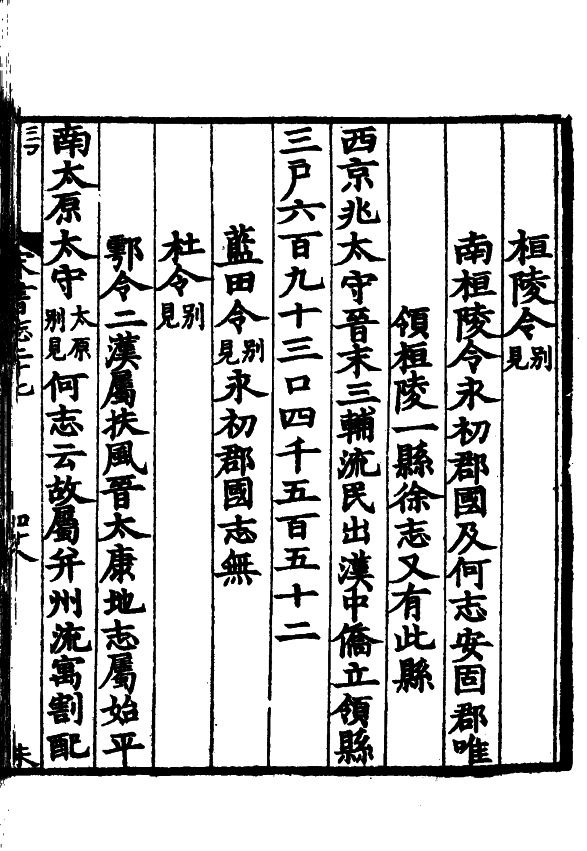 桓陵令別見
南桓陵令永初郡國及何志安固郡唯
領桓陵一縣徐志又有此縣
西京兆太守晉末三輔流民出漢中僑立領縣
三戶六百九十三口四千五百五十二
藍田令別見永初郡國志無
杜令別見
鄠令二漢屬扶風晉太康地志屬始平
南太原太守太原別見何志云故屬并州流寓割配